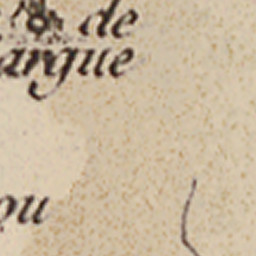 de
argue
ou